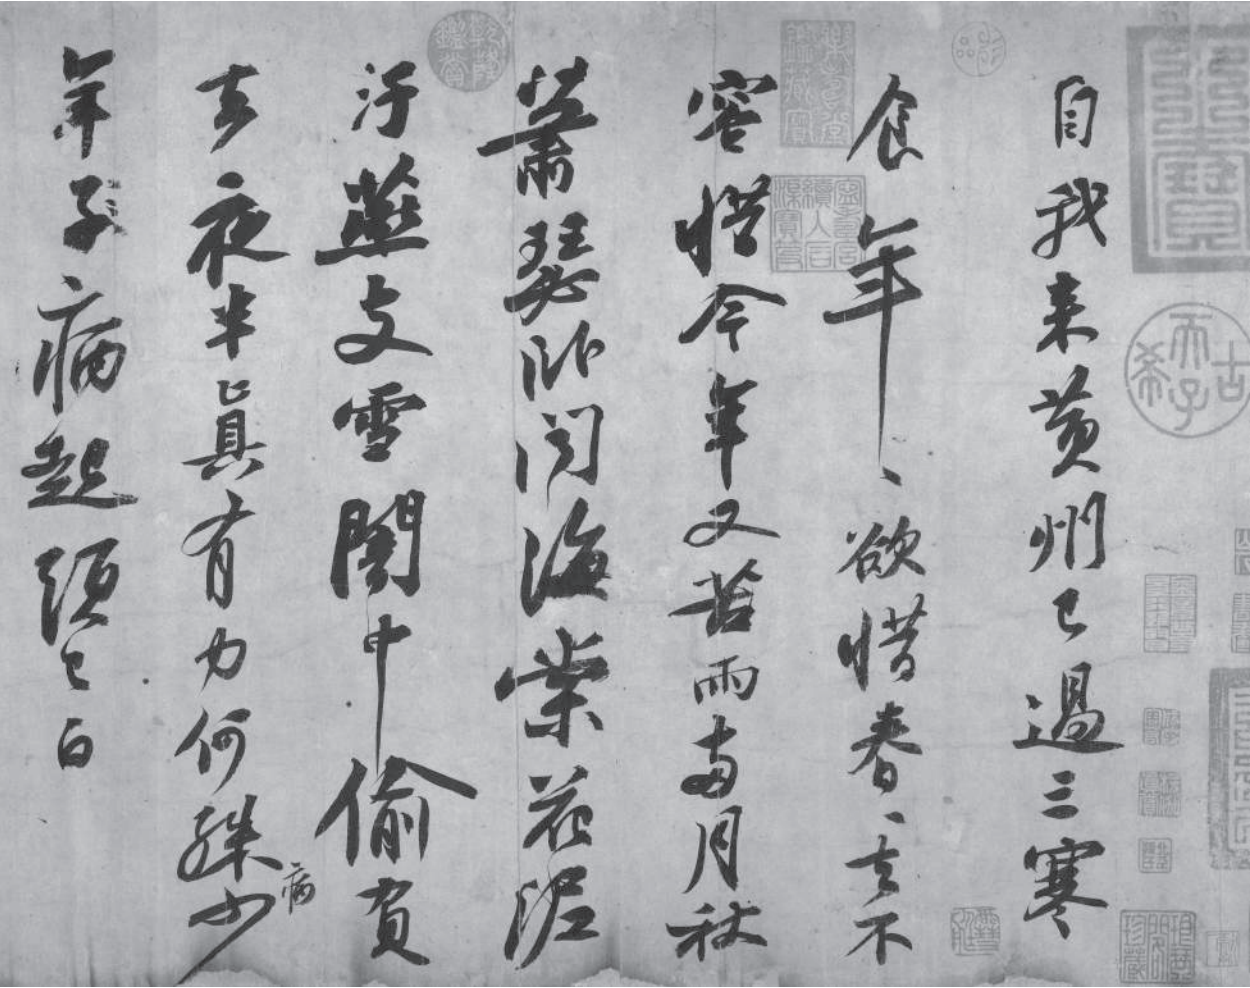 自我来黄州已過三寒
食年〻欲惜春〻去不
容惜今年又苦雨兩月秋
蕭瑟卧聞海棠花泥
汙燕支雪闇中偷負
去夜半真有力何殊少
病
年子病起頭已白
古希天子